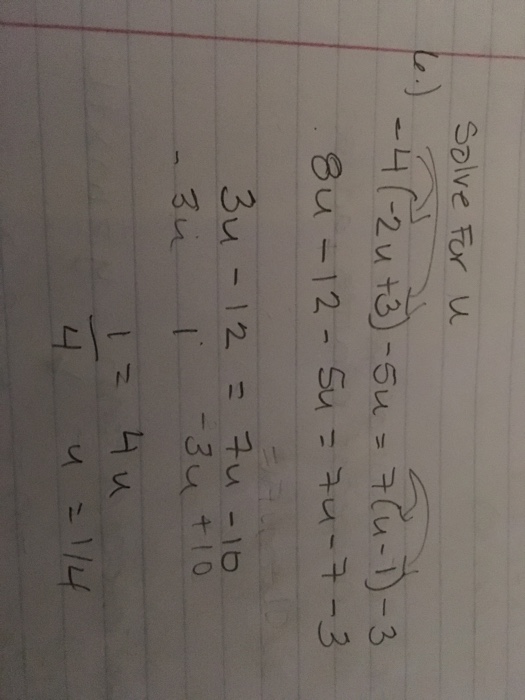 Solve For u
6.) -4(-2u+3)-5u = 7(u-1)-3
8u-12-5u = 7u-7-3
3u-12 = 7u-10
-3u -3u +10
1 = 4u
4 u = 1/4